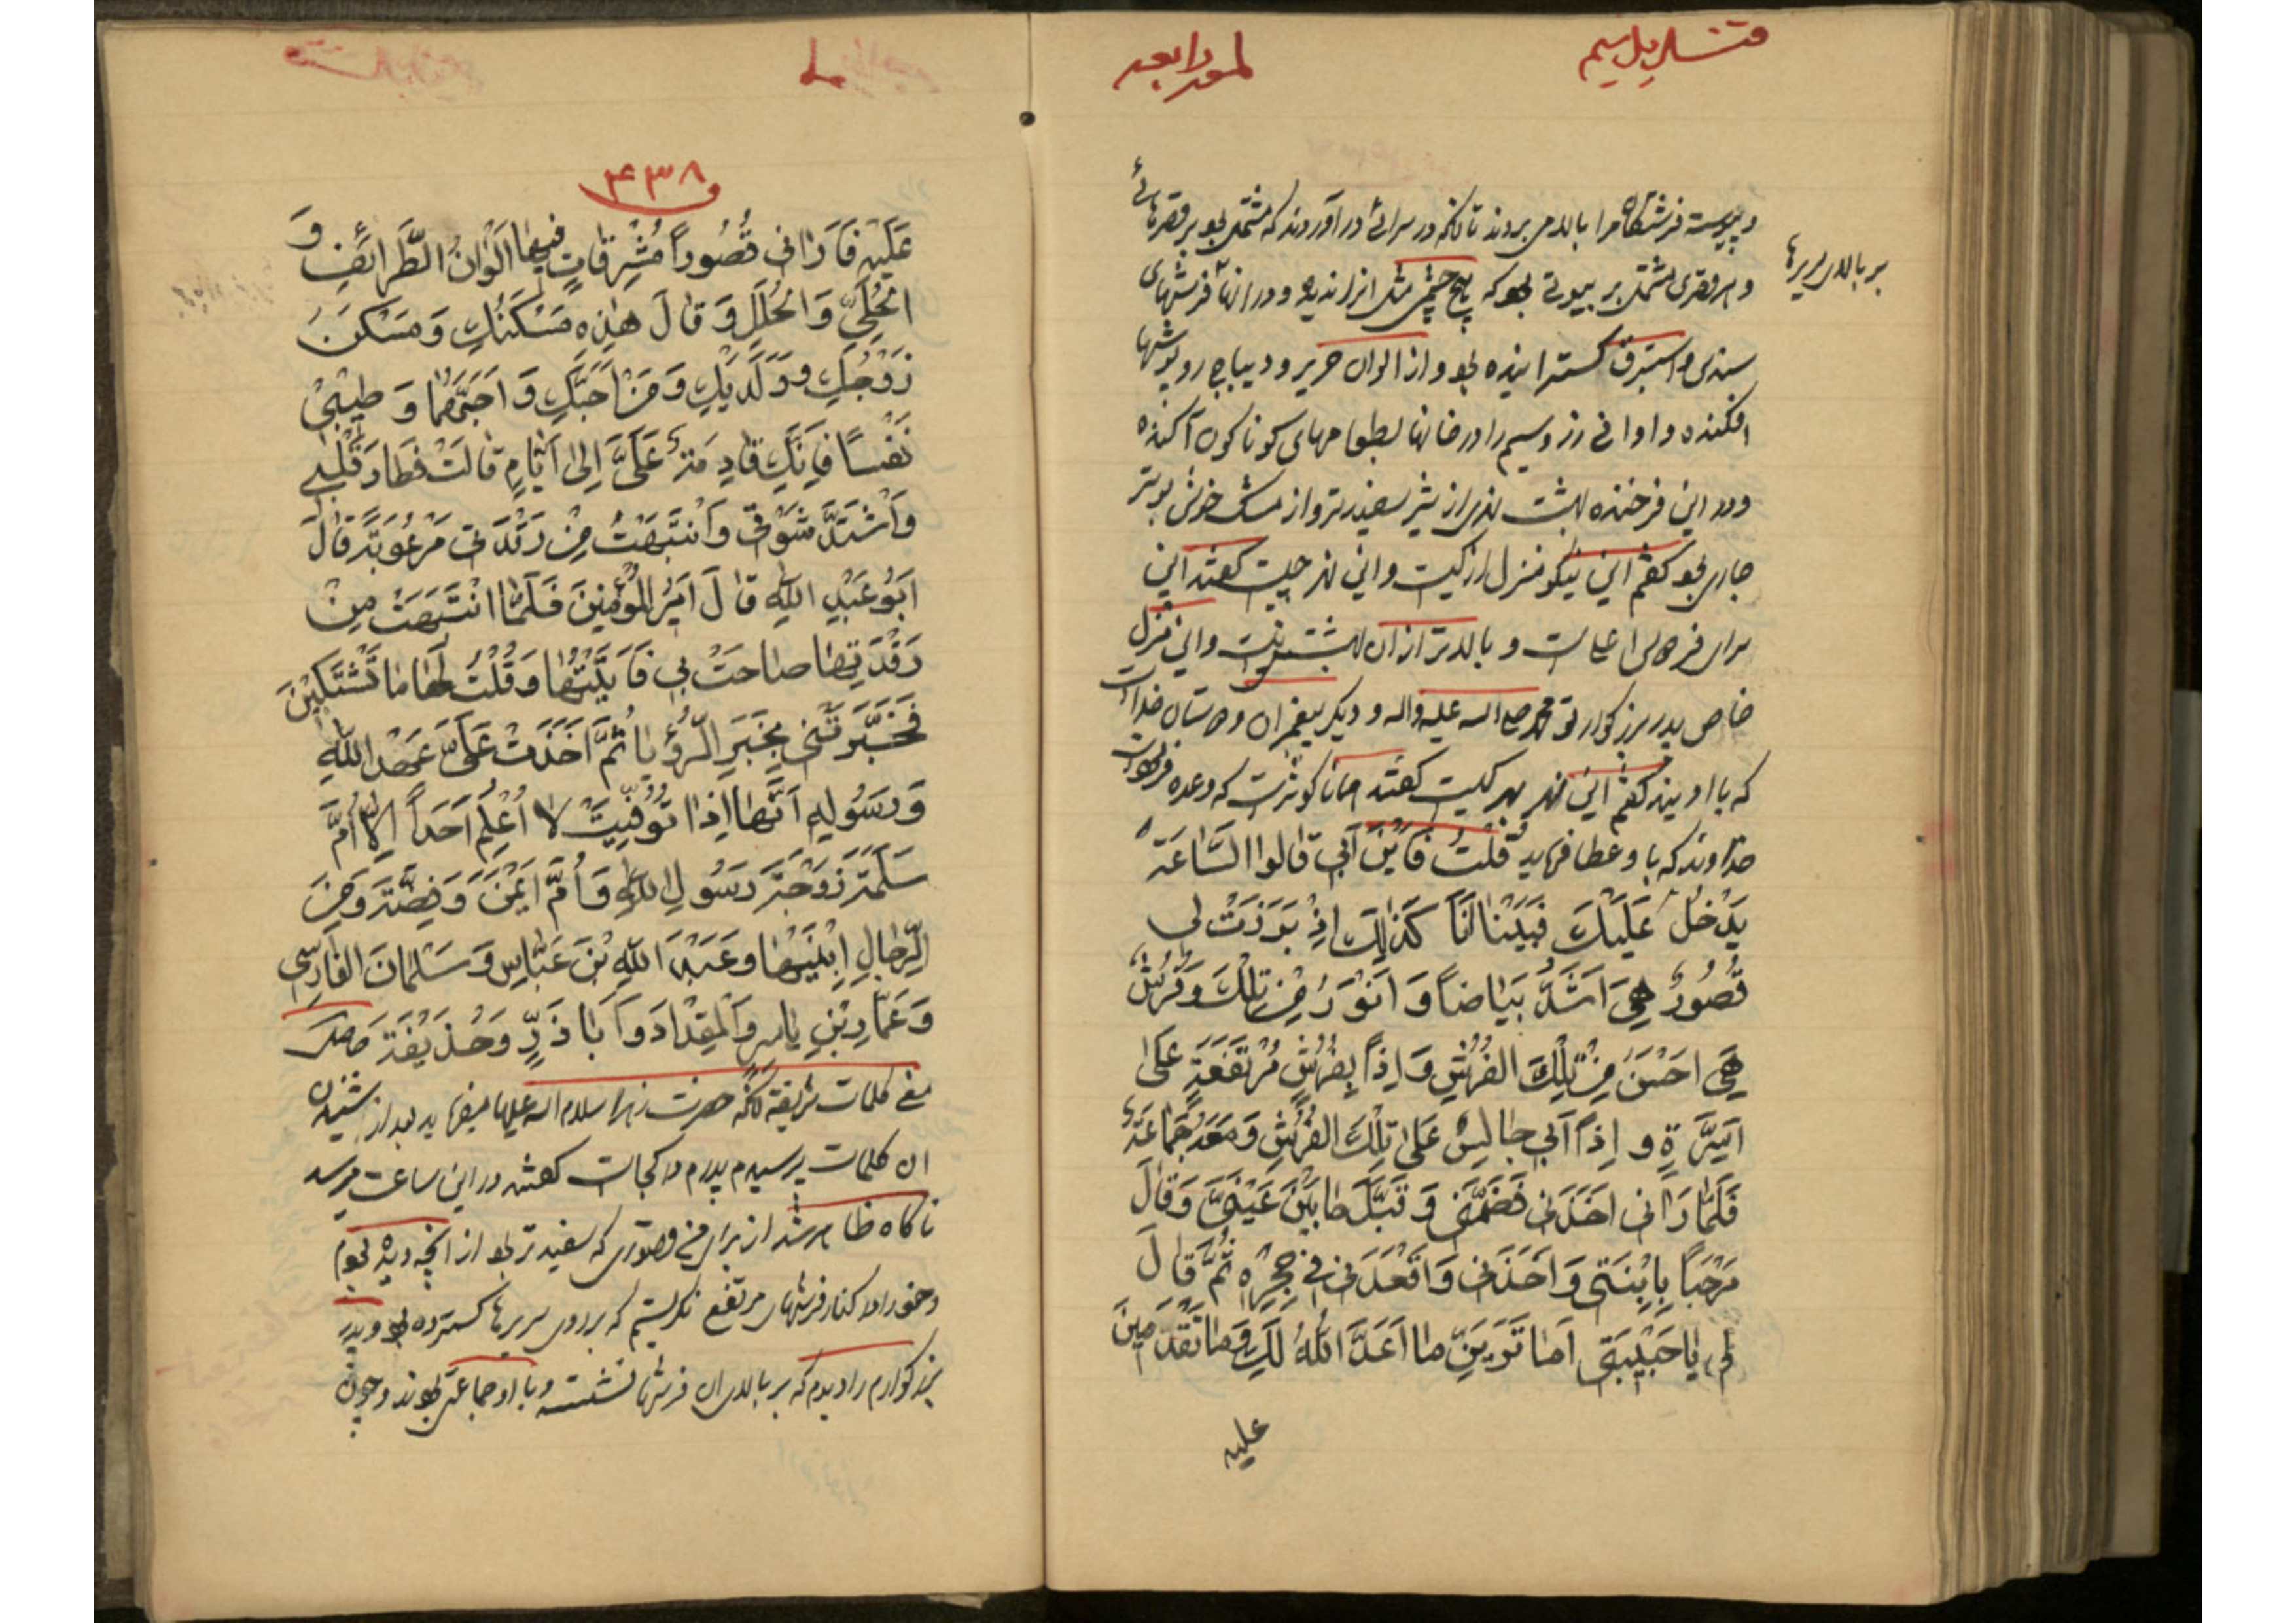 و پیوسته فرشتگان مرا ببالا می بردند تا آنکه در سرائی در آوردند که مشتمل بود بر قصرهائی
و هر قصری مشتمل بر بیوتی بود که هیچ چشمی مثل انرا ندیده و در انها فرشهای
بر بالای سریرها
سندس و استبرق گسترانیده بود و از الوان حریر و دیباج روپوشها
افکنده و اوانی زر و سیم را در خانها بطعامهای گوناگون آکنده
و در این فرخنده بهشت نهری از شیر سفیدتر و از مشک خوش بوتر
جاری بود گفتم این نیکو منزل از کیست و این نهر چیست گفتند این
سرای فردوس اعلی است و بالاتر از ان بهشتی نیست و این منزل
خاص پدر بزرگوار تو محمد صلی الله علیه واله و دیگر پیغمبران و دوستان خداست
که با او یند گفتم این نهر بهر کیست گفتند همانا کوثرست که وعده فرموده است
خداوند که باو عطا فرماید قُلْتُ فَاَیْنَ اَبی قالُوا السَّاعَةَ
یَدْخُلُ عَلَیْكَ فَبَیْنا اَنَا کَذٰلِكَ اِذْ بَرَزَتْ لی
قُصُورٌ هِیَ اَشَدُّ بَیَاضاً وَ اَنْوَرُ مِنْ تِلْكَ وَ فُرُشٌ
هِیَ اَحْسَنُ مِنْ تِلْكَ الفُرُشِ وَ اِذاً بِفُرُشٍ مُرْتَفَعَةٍ عَلیٰ
اَسِرَّةٍ و اِذاً اَبی جالِسٌ عَلیٰ تِلْكَ الفُرُشِ وَ مَعَهُ جَمَاعَةٌ
فَلَمَّا رَاٰنی اَخَذَنی فَضَمَّنی وَ قَبَّلَ مَا بَیْنَ عَیْنَیَّ وَ قَالَ
مَرْحَباً بِابْنَتی وَ اَخَذَنی وَ اَقْعَدَنی فی حِجْرِهِ ثُمَّ قَالَ
لی یا حَبیبَتی اَمَا تَرَیْنَ ما اَعَدَّ اللهُ لَكِ وَ مَا تَقْدَمینَ
علیه
۴۳۸
عَلَیْهِ فَاَرَانی قُصُوراً مُشْرِقاتٍ فیها اَلْوانُ الطَّرَائِفِ وَ
الحُلِیِّ وَ الحُلَلِ وَ قالَ هٰذِهِ مَسْکَنُكِ وَ مَسْکَنُ
زَوْجِكِ وَ وَلَدَیْكِ وَ مَنْ اَحَبَّكِ وَ اَحَبَّهُمَا وَ طیبی
نَفْساً فَاِنَّكِ قَادِمَةٌ عَلَیَّ اِلیٰ اَیَّامٍ قالَتْ فَطَارَ قَلْبی
وَاشْتَدَّ شَوْقی وَ انْتَبَهْتُ مِنْ رَقْدَتی مَرْعُوبَةً قالَ
اَبُو عَبْدِ اللهِ قالَ اَمیرُ المُؤْمِنینَ فَلَمَّا انْتَبَهَتْ مِنْ
رَقْدَتِها صاحَتْ بی فَاَتَیْتُها وَ قُلْتُ لَها ما تَشْتَکینَ
فَخَبَّرَتْنی بِخَبَرِ الرُّؤْیا ثُمَّ اَخَذَتْ عَلَیَّ عَهْدَ اللهِ
وَ رَسُولِهِ اَنَّها اِذا تُوُفِّیَتْ لا اُعْلِمُ اَحَداً اِلّا اُمَّ
سَلَمَةَ زَوْجَةَ رَسُولِ اللهِ وَ اُمَّ اَیْمَنَ وَ فِضَّةَ وَ مِنَ
الرِّجالِ اِبْنَیْها وَ عَبْدَ اللهِ بْنَ عَبَّاسٍ وَ سَلْمَانَ الفَارِسی
وَ عَمَّارَ بْنَ یاسِرٍ وَ المِقْدَادَ وَ اَبا ذَرٍّ وَ حُذَیْفَةَ
معنی کلمات شریفه انکه حضرت زهرا سلام الله علیها میفرماید بعد از شنیدن
ان کلمات پرسیدم پدرم در کجاست گفتند در این ساعت میرسد
ناگاه ظاهر شد از برای من قصوری که سفیدتر بود از انچه دیده بودم
و خود را در کنار فرشهای مرتفع نگریستم که بر روی سریرها گسترده بود و پدر
بزرگوارم را دیدم که بر بالای ان فرشها نشسته و با او جماعتی بودند و چون